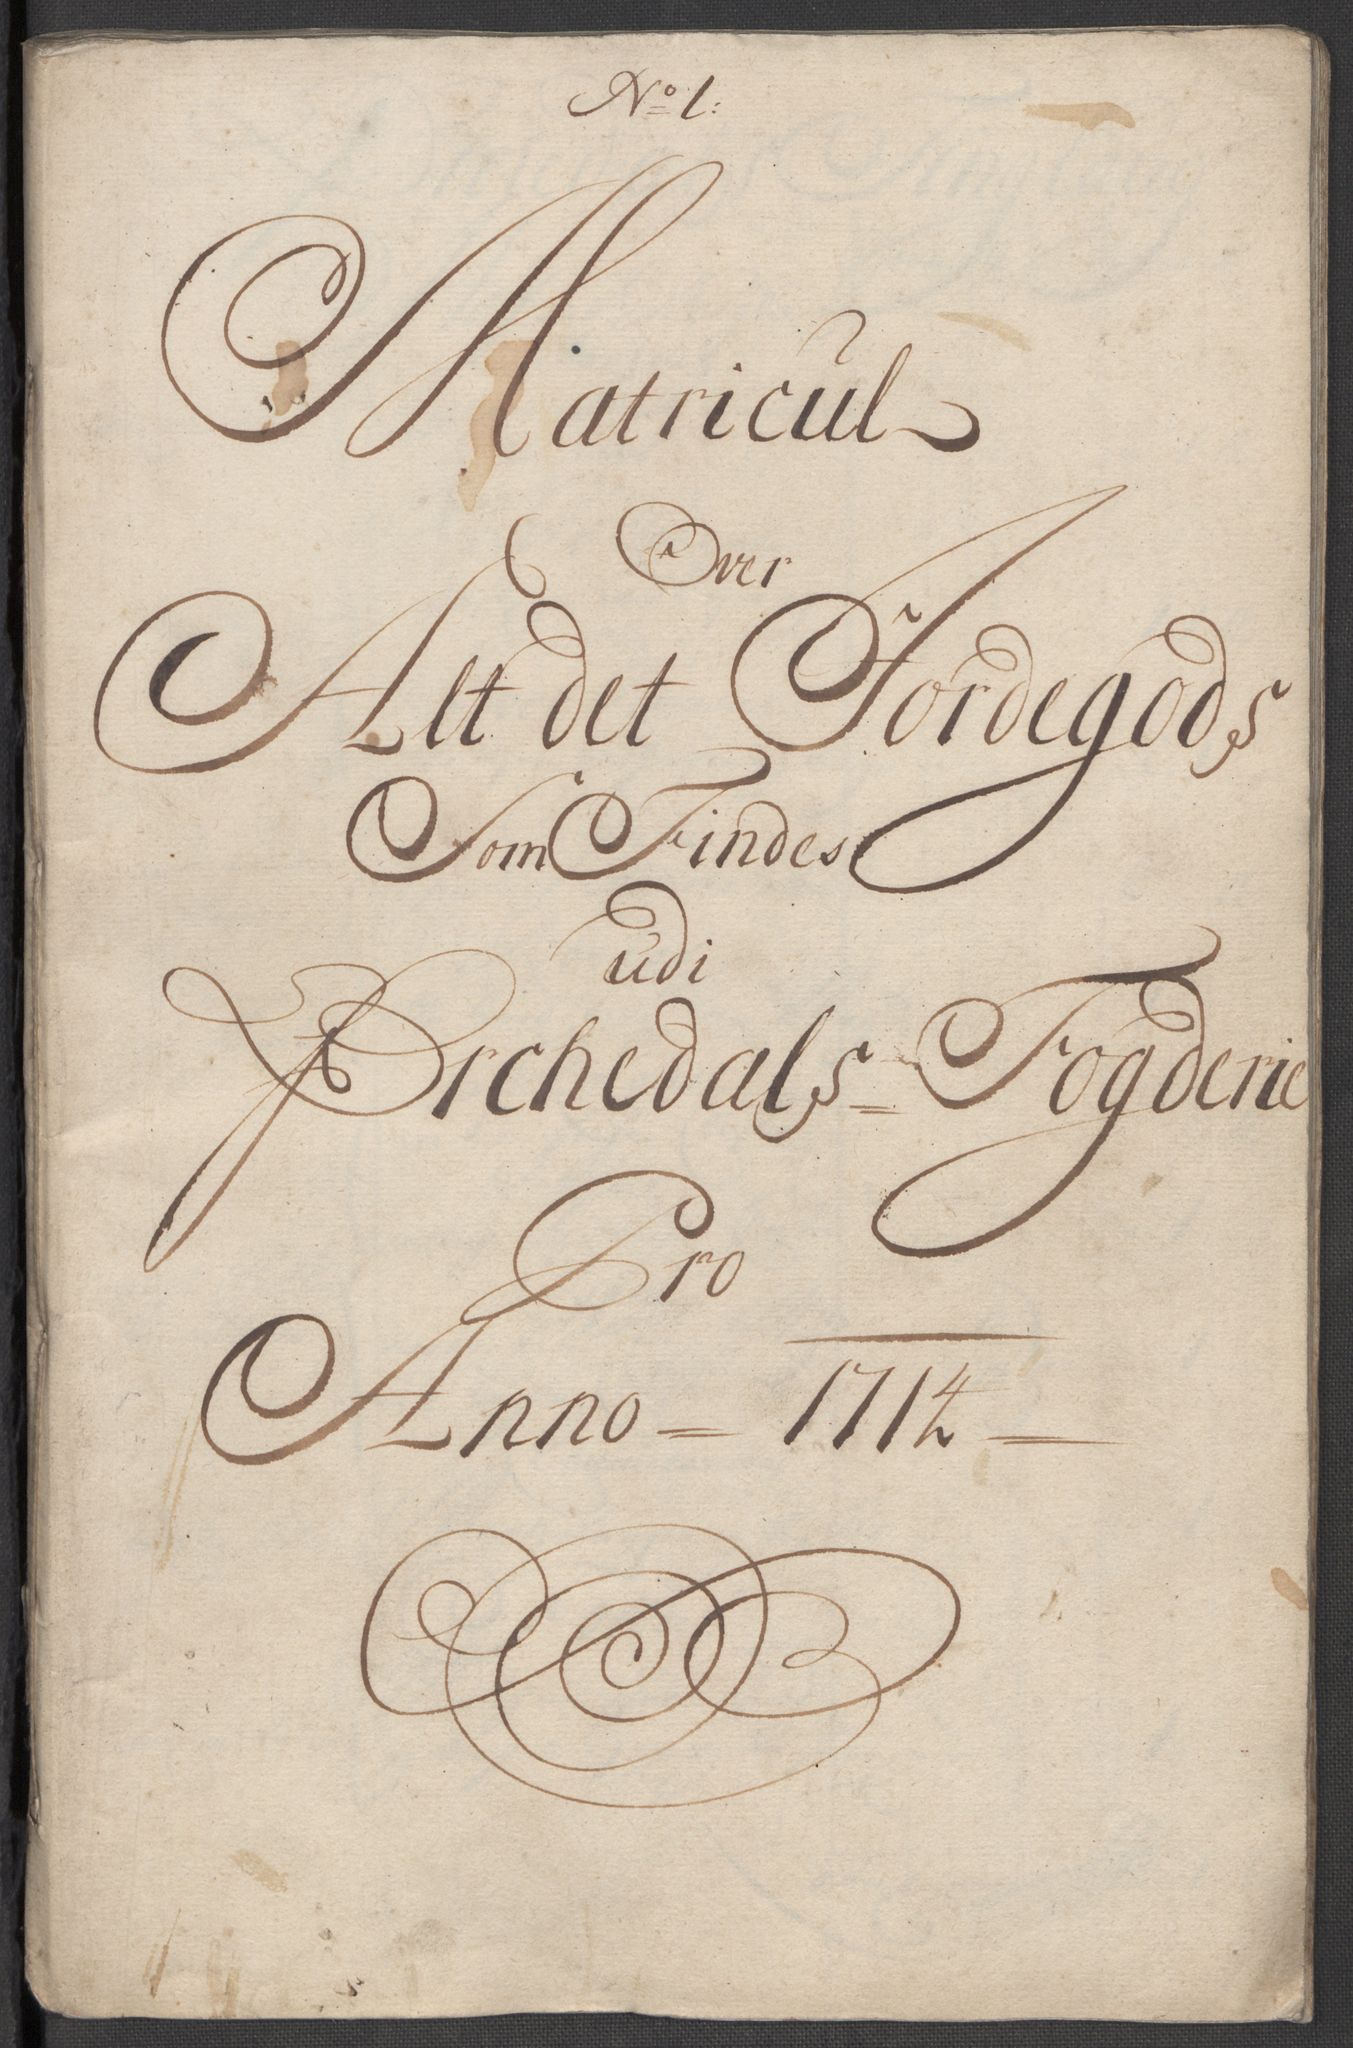 No 1:
Matricul
Over
Alt det Jordegods
Som Findes
udi
Orchedals = Fogderie
Pro
Anno = 1714 =